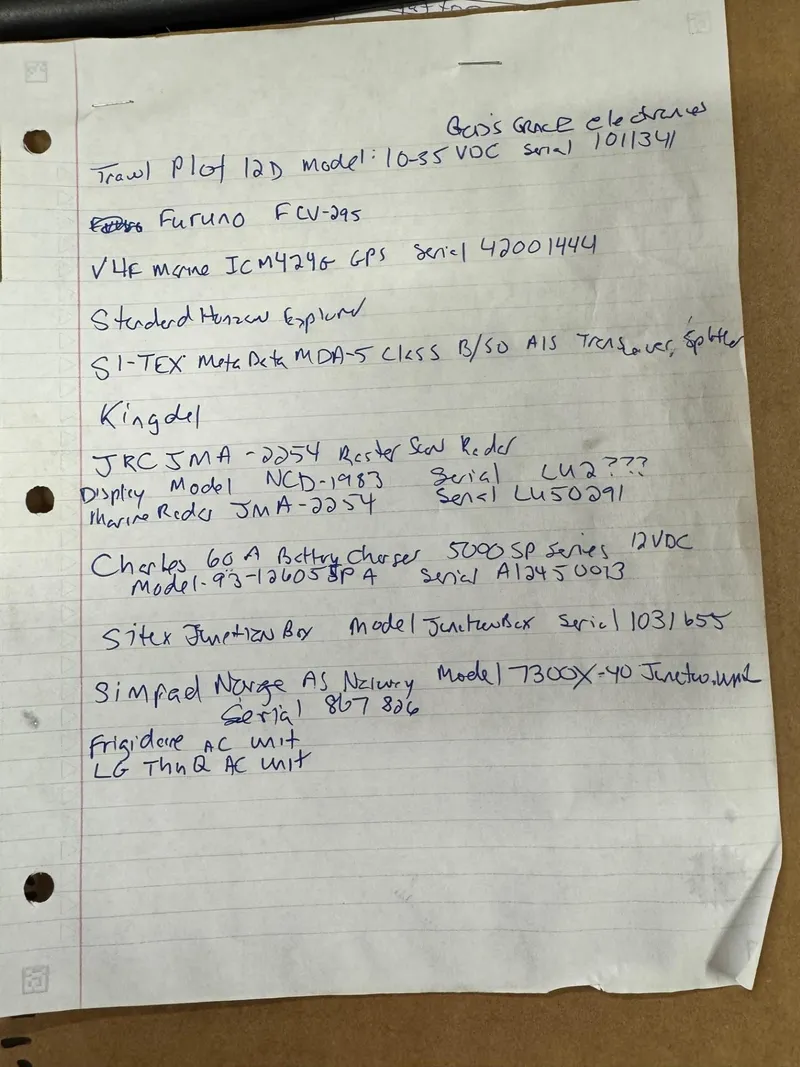 God's GRACE electronics
Trawl Plot 12D Model: 10-35 VDC Serial 1011341
Furuno FCV-295
V4F Marine ICM424G GPS Serial 42001444
Standard Horizon Explorer
SI-TEX MetaData MDA-5 Class B/SO AIS Transceiver, Splitter
Kingdel
JRC JMA-2254 Raster Scan Radar
Display Model NCD-1983 Serial LU2???
Marine Radar JMA-2254 Serial LU50291
Charles 60 A Battery Charger 5000 SP Series 12VDC
Model-93-12605SP A Serial A12450013
Sitex Junction Box Model Junction Box Serial 1031655
Simrad Norge AS Norway Model 7300X-40 Junction unit
Serial 867826
Frigidaire AC unit
LG ThinQ AC unit